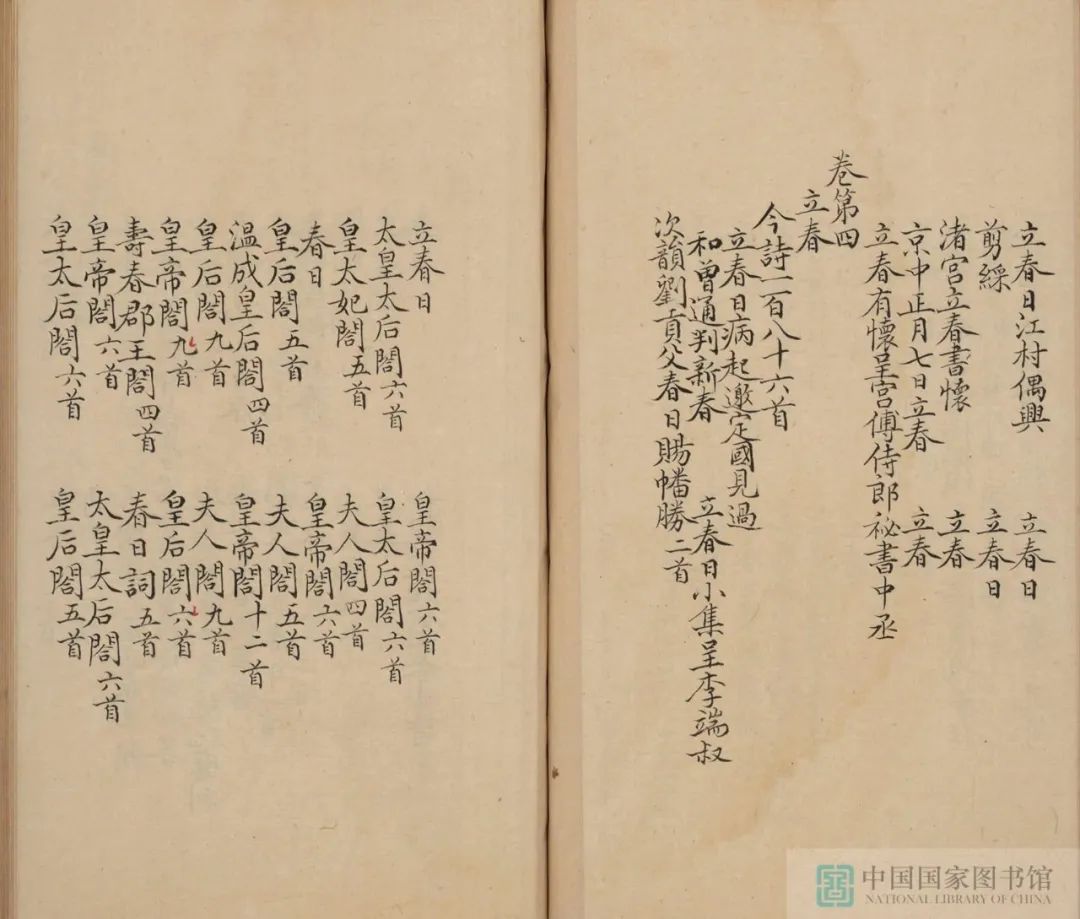 立春日江村偶興 立春日
剪綵 立春日
渚宮立春書懷 立春
京中正月七日立春 立春
立春有懷呈宮傅侍郎秘書中丞
卷第四
立春
今詩一百八十六首
立春日病起邀定國見過
和曾通判新春 立春日小集呈李端叔
次韻劉貢父春日賜幡勝二首
立春日 皇帝閤六首
太皇太后閤六首 皇太后閤六首
皇太妃閤五首 夫人閤四首
春日 皇帝閤六首
皇后閤五首 夫人閤五首
温成皇后閤四首 皇帝閤十二首
皇后閤九首 夫人閤九首
皇帝閤九首 皇后閤六首
壽春郡王閤四首 春日詞五首
皇帝閤六首 太皇太后閤六首
皇太后閤六首 皇后閤五首
中国国家图书馆
NATIONAL LIBRARY OF CHINA